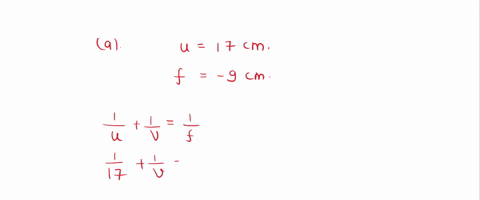 (a). u = 17 cm.
f = -9 cm.
1/u + 1/v = 1/f
1/17 + 1/v -